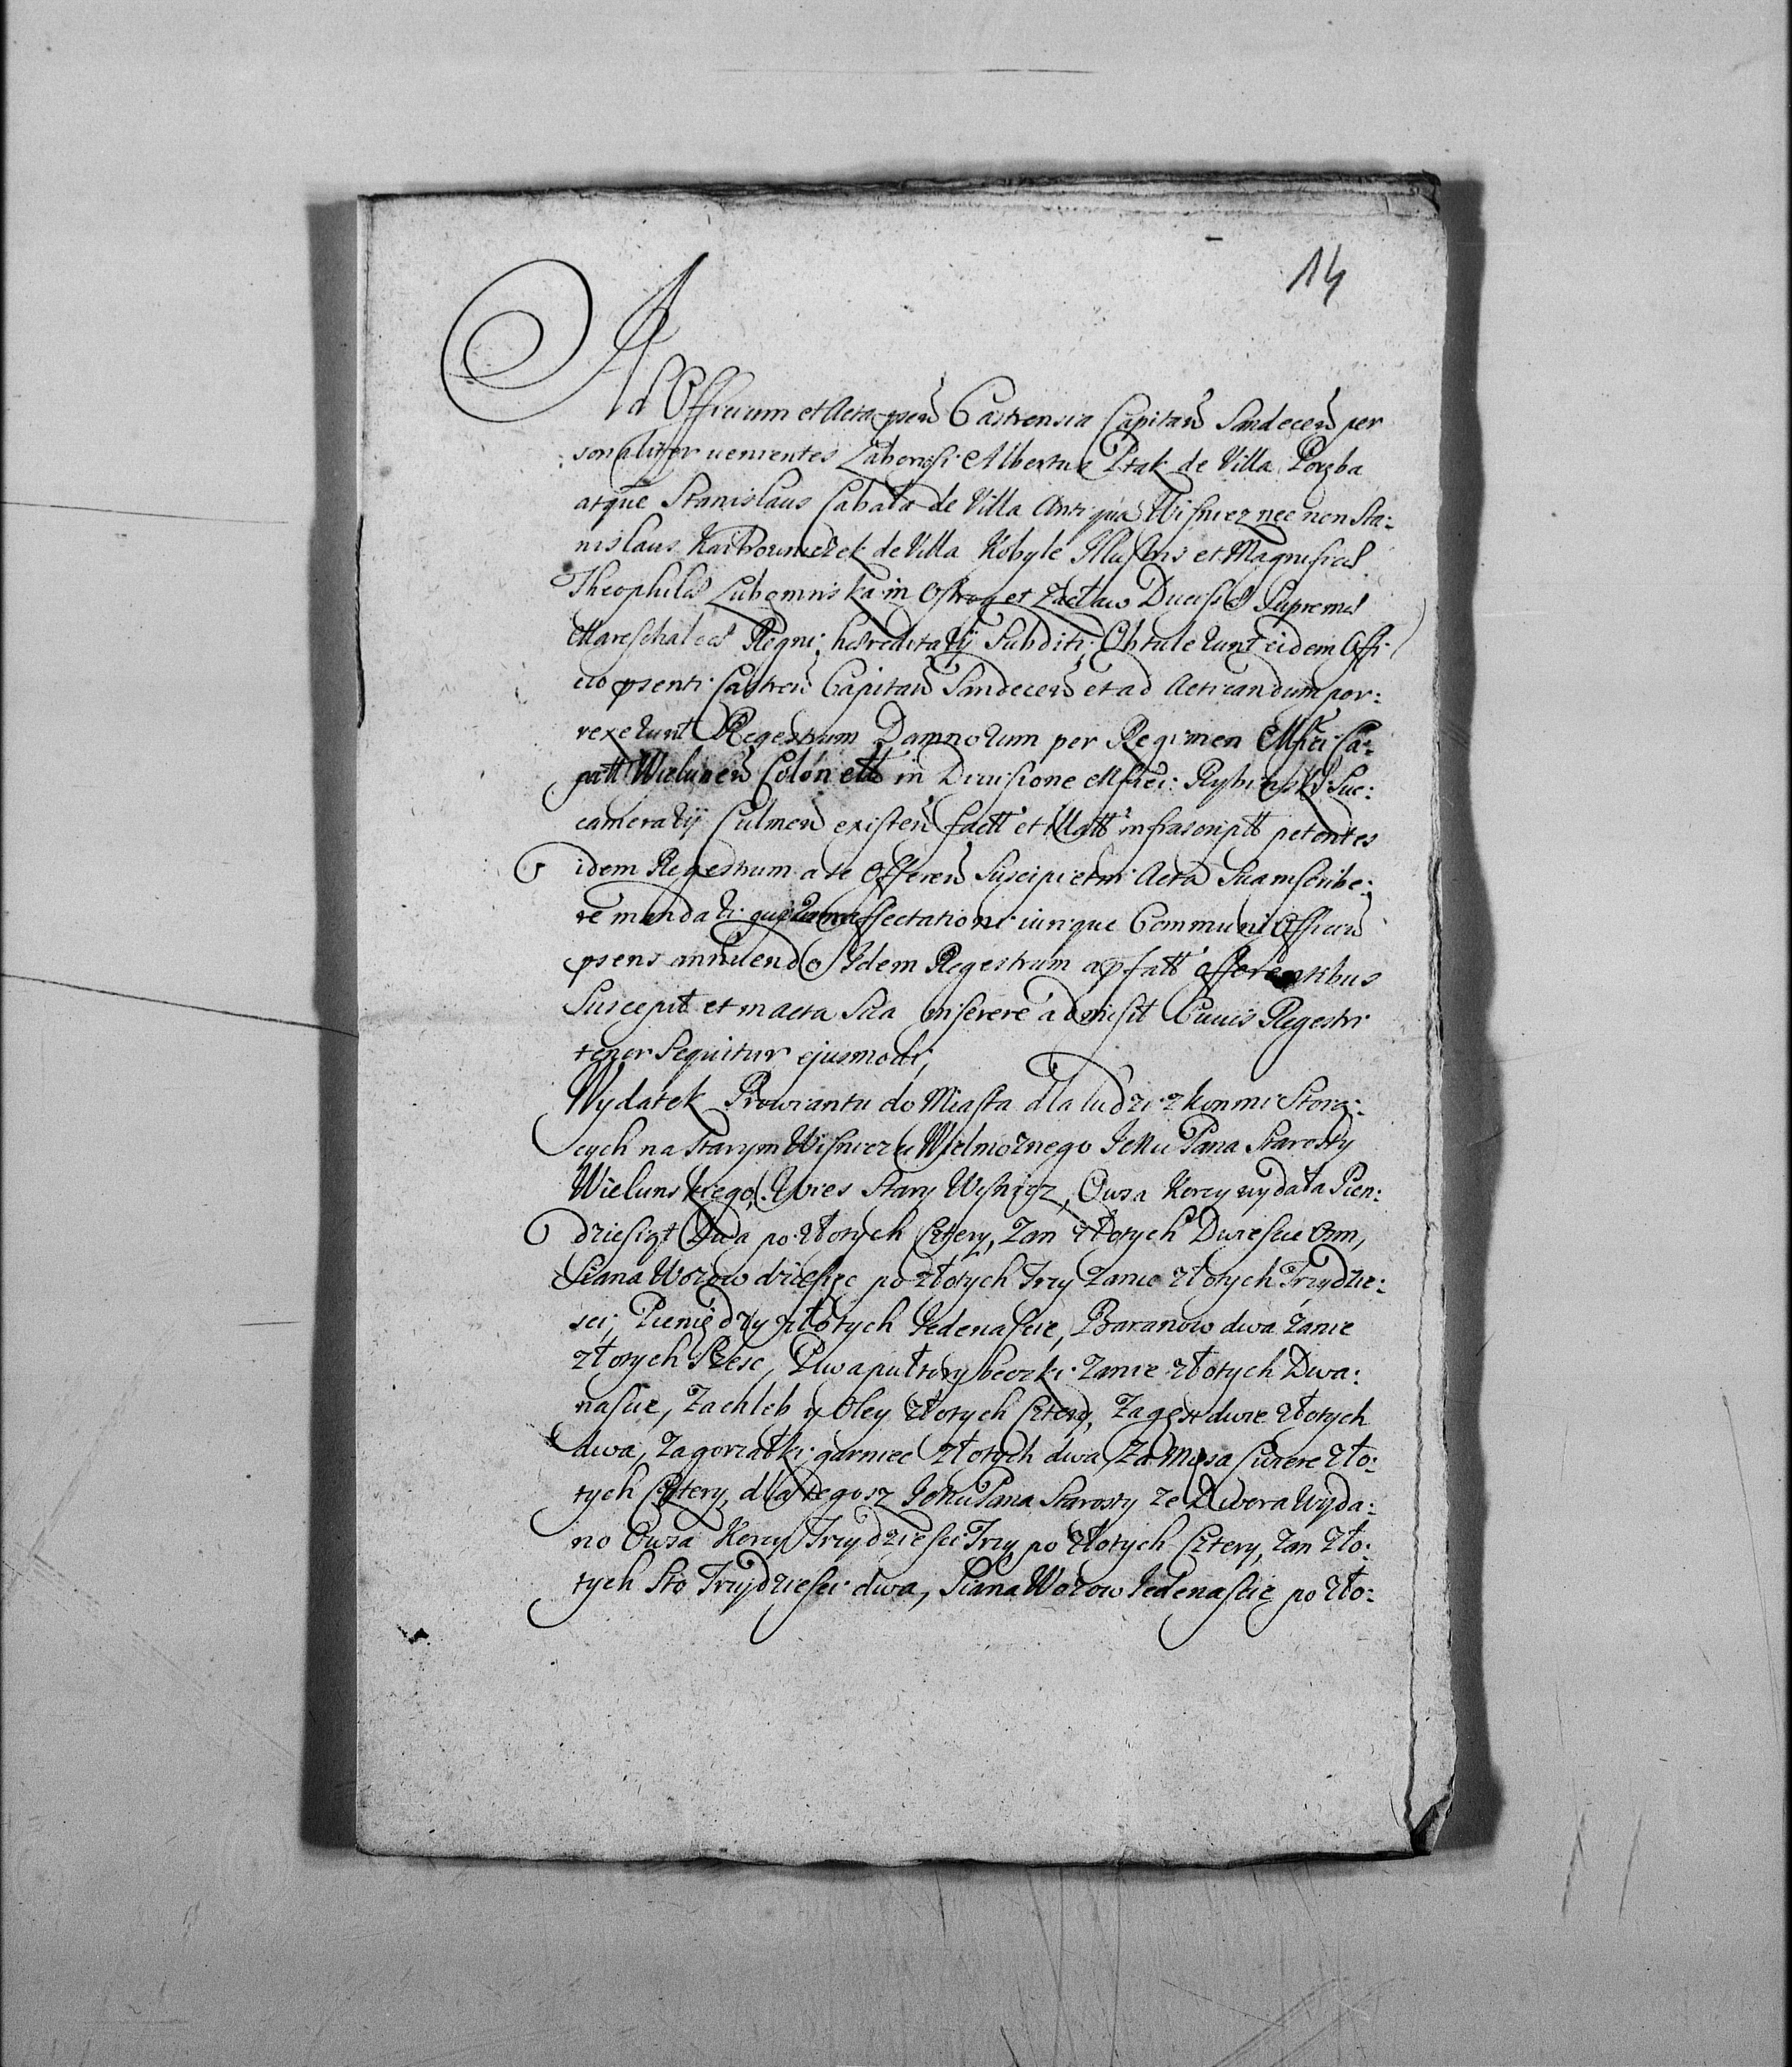 14
Ad Officium et Acta psen Castrensia Capitan Sandecen per
sonaliter venientes Laboriosi Albertus Ptak de Villa Poręba
atque Stanislaus Cabala de Villa Antiqua Wisnicz nec non Sta:
nislaus de Villa Kobyle Illustris et Magnificæ
Theophilæ Lubomirska in Ostrog et Zasław Ducissæ Supremæ
Mareschalcæ Regni, hæreditarij Subditi, Obtulerunt eidem Offi
cio psenti Castren Capitan Sandecen et ad Acticandum por:
rexerunt Regestrum Damnorum per Regimen Mfici Ca:
pitt Wielunen in Divisione Mfici: Rybinski Suc:
camerarij Culmen existen fact et illatt infrascriptt petentes
idem Regestrum a se Offeren Suscipi et in Acta Sua inscribe:
re mandari affectationi iurique Communi Officium
psens annuendo Idem Regestrum a pfatt offerentibus
Suscepit et in acta Sua inserere admisit Cuius Regestri
tenor Sequitur ejusmodi,
Wydatek Prowiantu do Miasta dla ludzi z konmi Stoią:
cych na Starym Wisniczu Wielmoznego Jeͤmci Pana Starosty
Wielunskiego, Wies Stary Wisnicz, Owsa Korcy wydała Pien:
dziesiąt Dwa po złotych Cztery, Zan złotych Dwiescie Osm,
Siana Wozow dziesięc po złotych Trzy Zanie złotych Trzydzie:
sci, Pieniędzy złotych Iedenascie, Baranow dwa Zanie
złotych Szesc, Piwa pułtory beczki Zanie złotych Dwa:
nascie, Za chleb y Oley złotych Cztery, Za gęsi dwie złotych
dwa, Za gorzałki garniec złotych dwa, Za Mięsa cwierc zło:
tych Cztery, dla tegosz Pana Starosty ze Dwora Wyda:
no Owsa Korcy Trzydziesci Trzy po złotych Cztery, Zan zło:
tych Sto Trzydziesci dwa, Siana Wozow Iedenascie po zło: